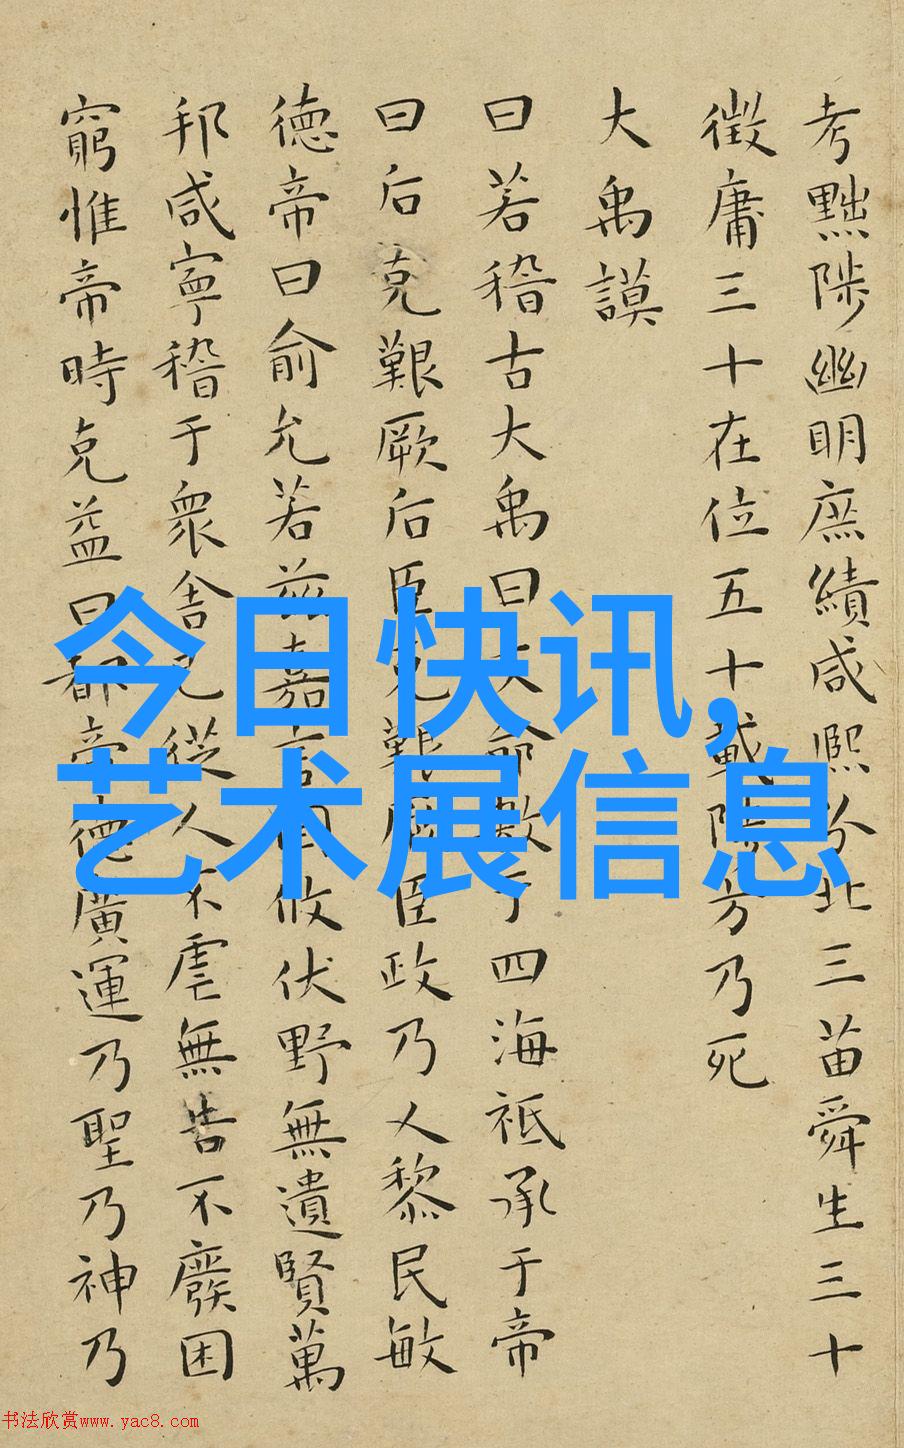 考黜陟幽明庶績咸熙分北三苗舜生三十
徵庸三十在位五十載陟方乃死
大禹謨
曰若稽古大禹曰文命敷于四海祗承于帝
曰后克艱厥后臣克艱厥臣政乃乂黎民敏
德帝曰俞允若茲嘉言罔攸伏野無遺賢萬
邦咸寧稽于衆舍己從人不虐無告不廢困
窮惟帝時克益曰都帝德廣運乃聖乃神乃
今日快讯,
艺术展信息
书法欣赏www.yac8.com